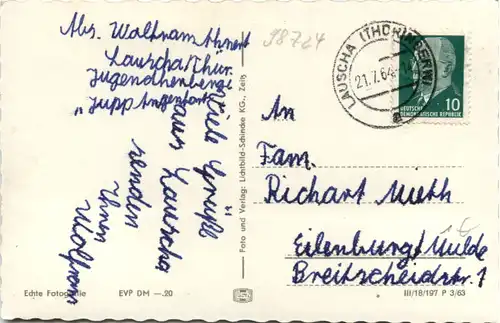 Abs. Wolfram Ahnert
Lauscha/Thür.
Jugendherberge
"Jupp Angenfort"
Viele Grüße
aus Lauscha
senden
Ihnen
Wolfram
LAUSCHA (THÜRINGERW)
21.7.64
a
DEUTSCHE
DEMOKRATISCHE REPUBLIK
10
An
Fam.
Richart Muth
Eilenburg/Mulde
Breitscheidstr. 1
Foto und Verlag: Lichtbild-Schincke KG., Zeitz
Echte Fotografie EVP DM —.20
III/18/197 P 3/63